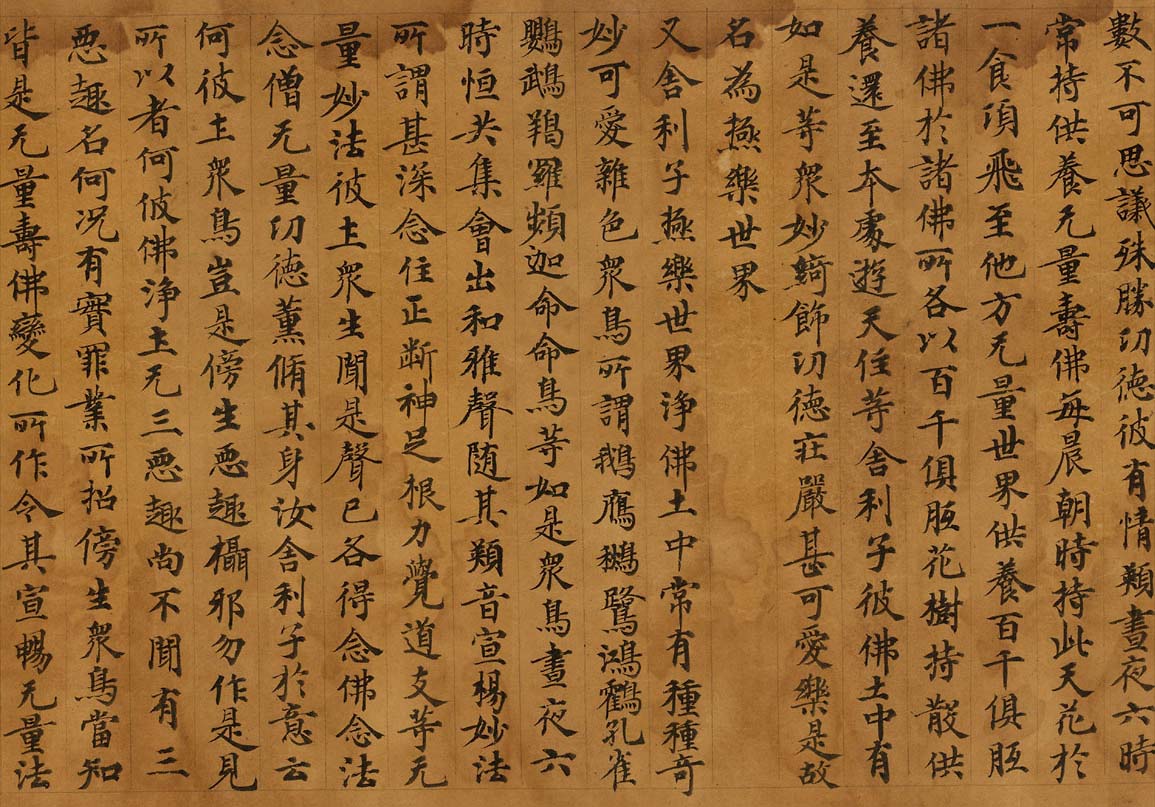 數不可思議殊勝功徳彼有情類晝夜六時
常持供養无量壽佛每晨朝時持此天花於
一食頃飛至他方无量世界供養百千俱胝
諸佛於諸佛所各以百千俱胝花樹持散供
養還至本處遊天住等舍利子彼佛土中有
如是等衆妙綺飾功徳莊嚴甚可愛樂是故
名為極樂世界
又舍利子極樂世界淨佛土中常有種種奇
妙可愛雜色衆鳥所謂鵝鴈鶖鷺鴻鶴孔雀
鸚鵡羯羅頻迦命命鳥等如是衆鳥晝夜六
時恒共集會出和雅聲随其類音宣揚妙法
所謂甚深念住正斷神足根力覺道支等无
量妙法彼土衆生聞是聲已各得念佛念法
念僧无量功徳薰脩其身汝舍利子於意云
何彼土衆鳥豈是傍生惡趣攝邪勿作是見
所以者何彼佛淨土无三惡趣尚不聞有三
惡趣名何况有實罪業所招傍生衆鳥當知
皆是无量壽佛變化所作令其宣暢无量法